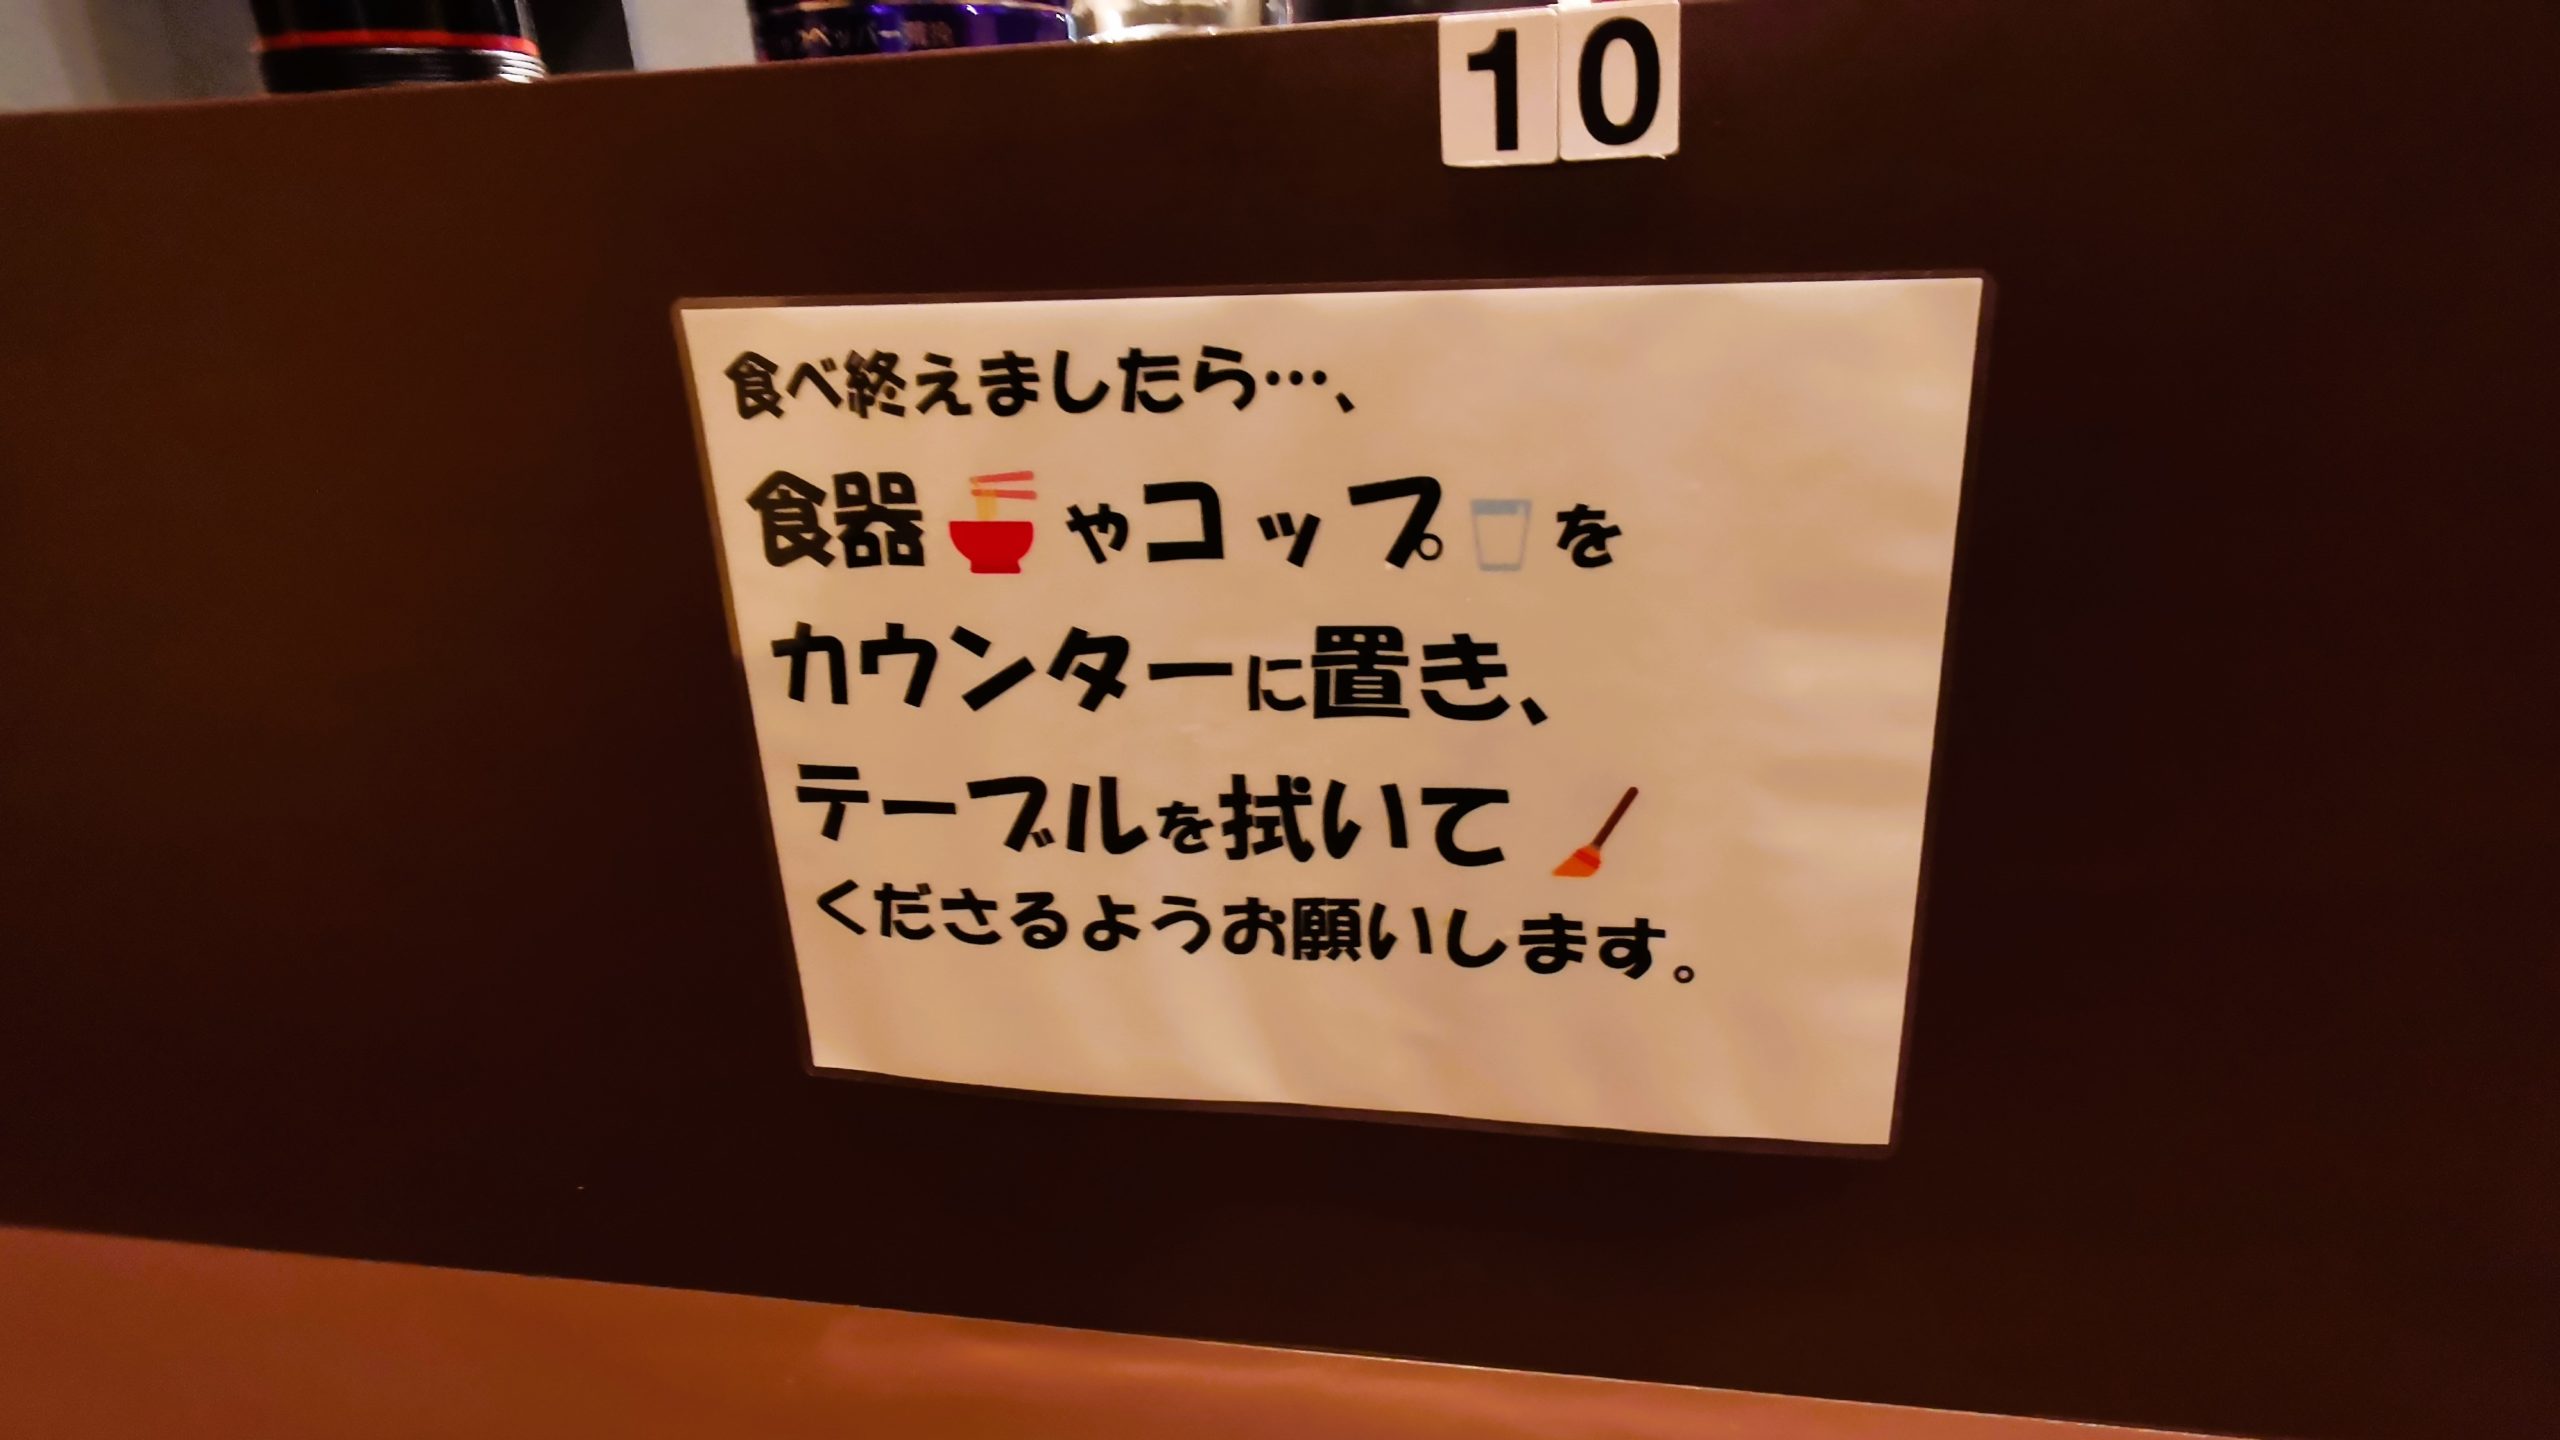 10
食べ終えましたら…、
食器やコップを
カウンターに置き、
テーブルを拭いて
くださるようお願いします。